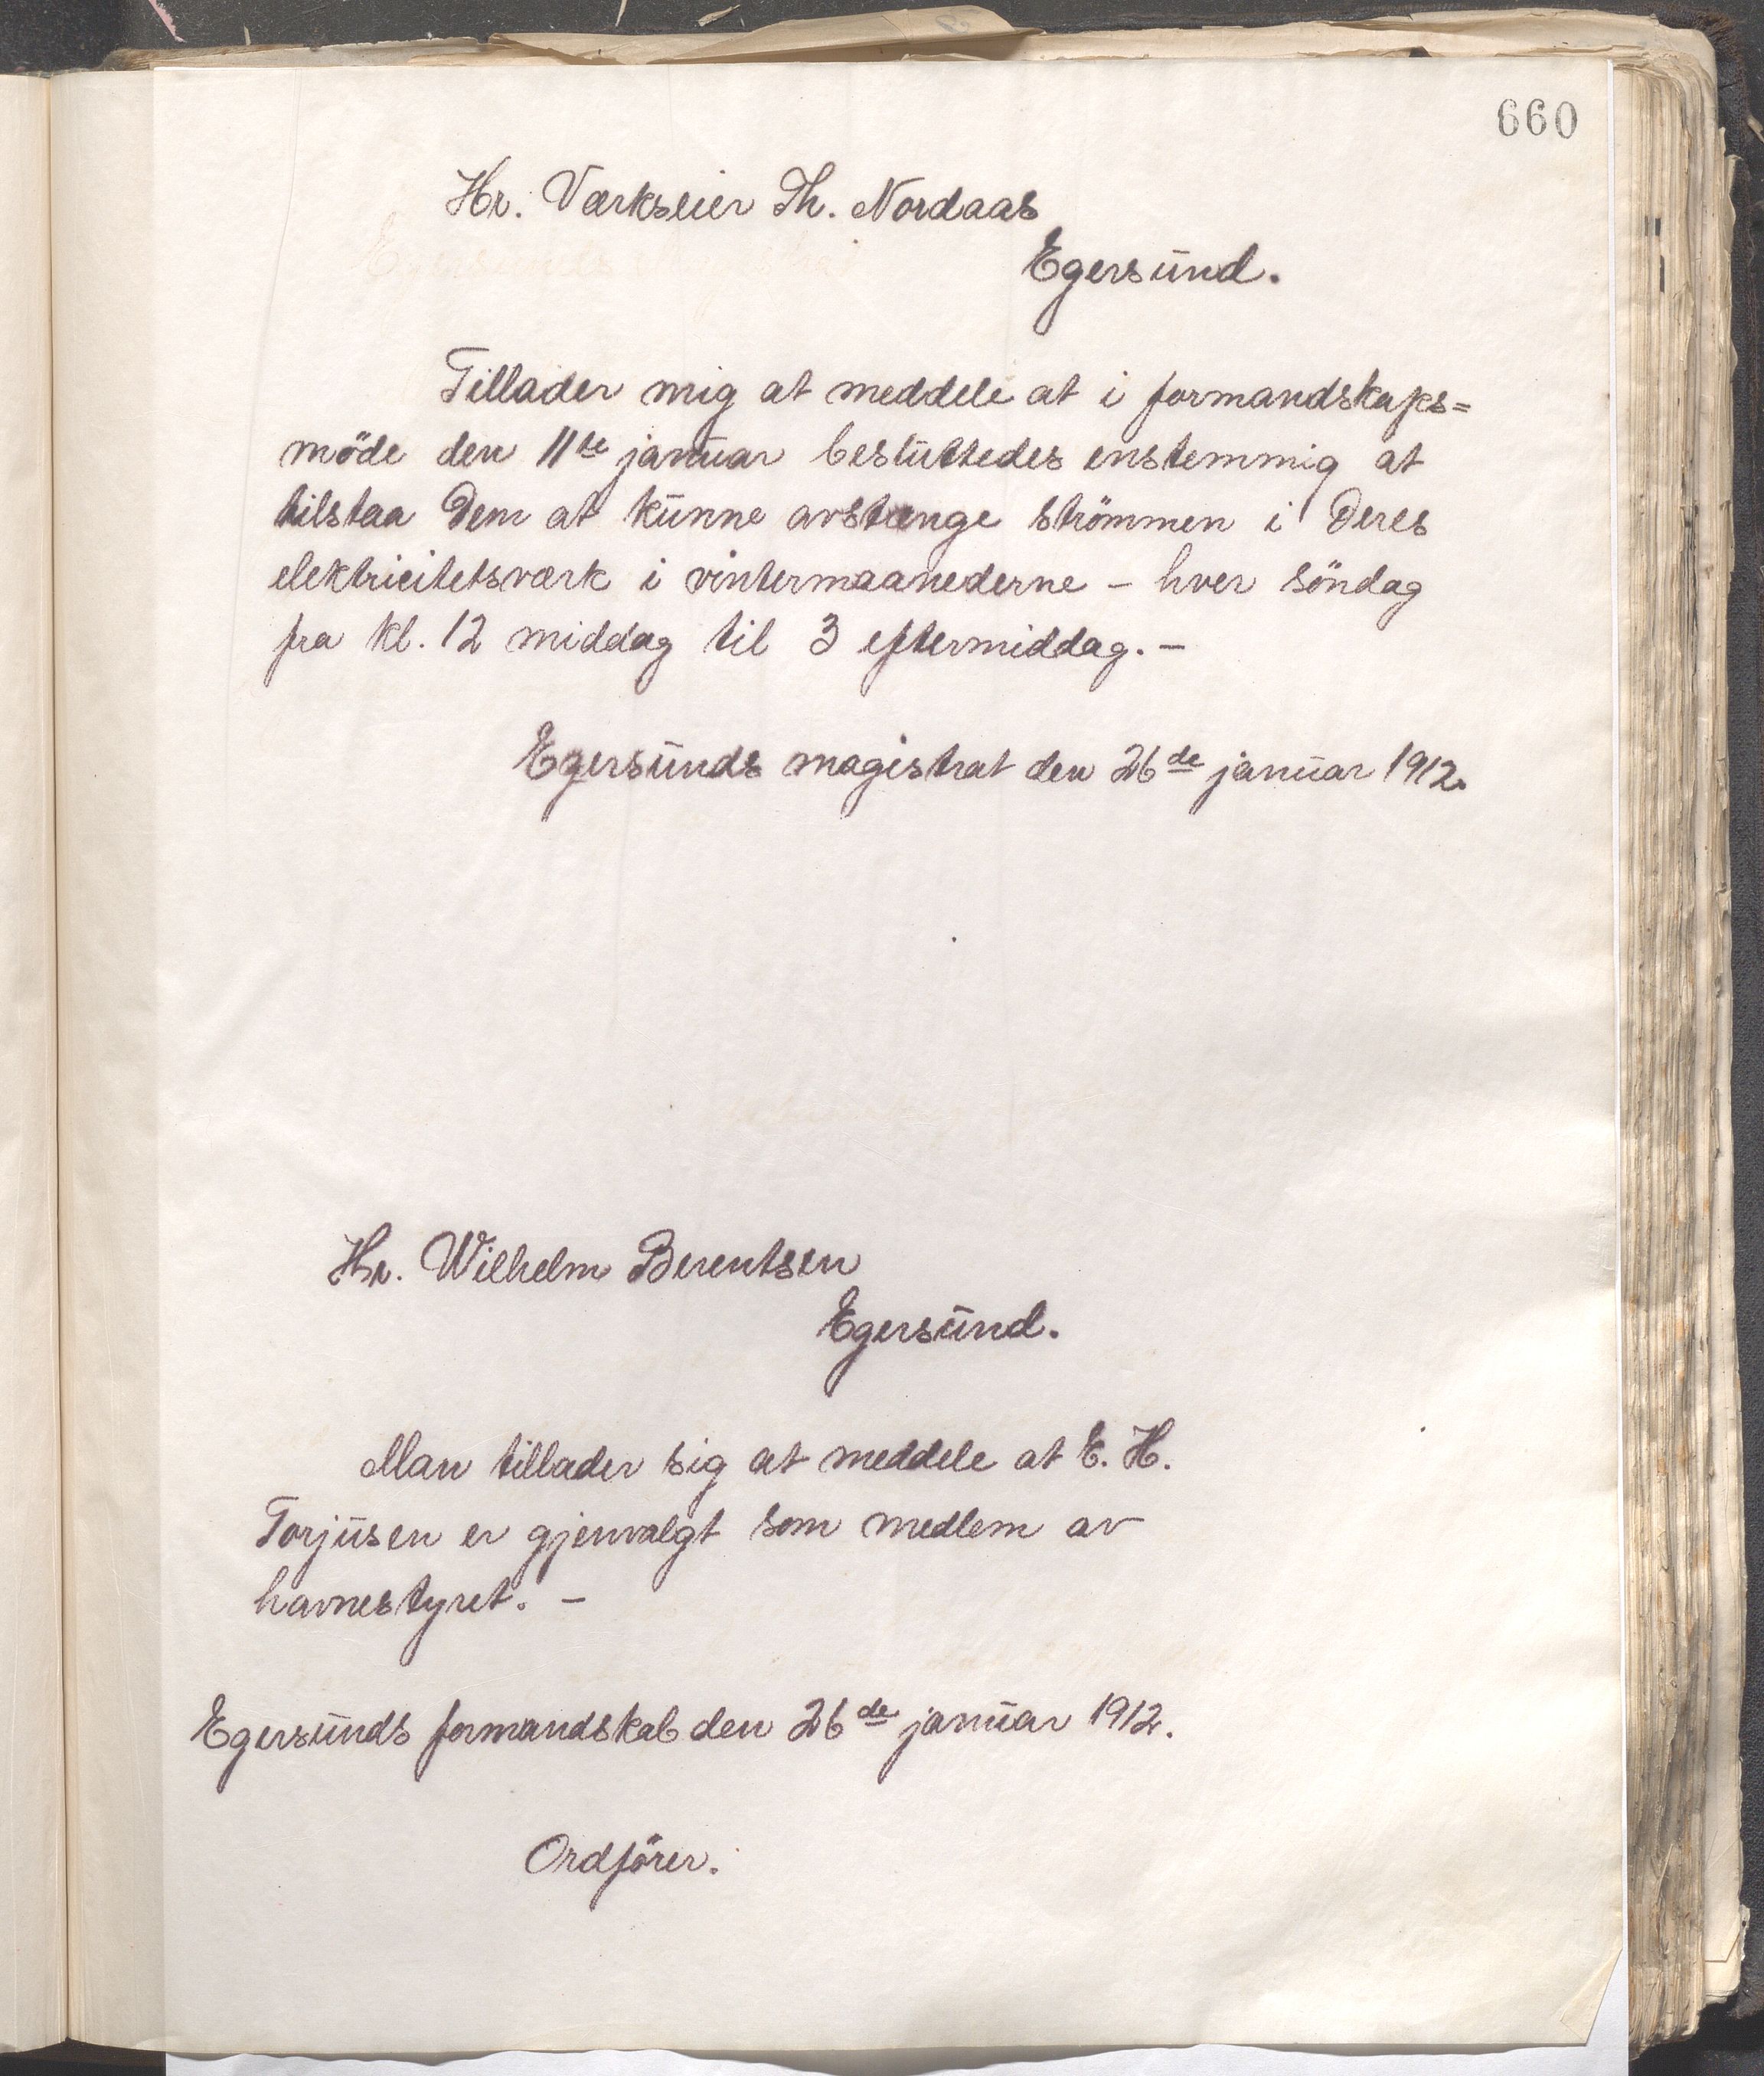 660
Hr. Værkseier Th. Nordaas
Egersund.
Tillader mig at meddele at i formandskaps=
möde den 11te januar besluttedes enstemmig at
tilstaa Dem at kunne avstænge strömmen i Deres
elektricitetsværk i vintermaanederne - hver söndag
fra kl. 12 middag til 3 eftermiddag. -
Egersunds magistrat den 26de januar 1912.
Hr. Wilhelm Berentsen
Egersund.
Man tillader sig at meddele at E. H.
Torjusen er gjenvalgt som medlem av
havnestyret. -
Egersunds formandskab den 26de januar 1912.
Ordförer.